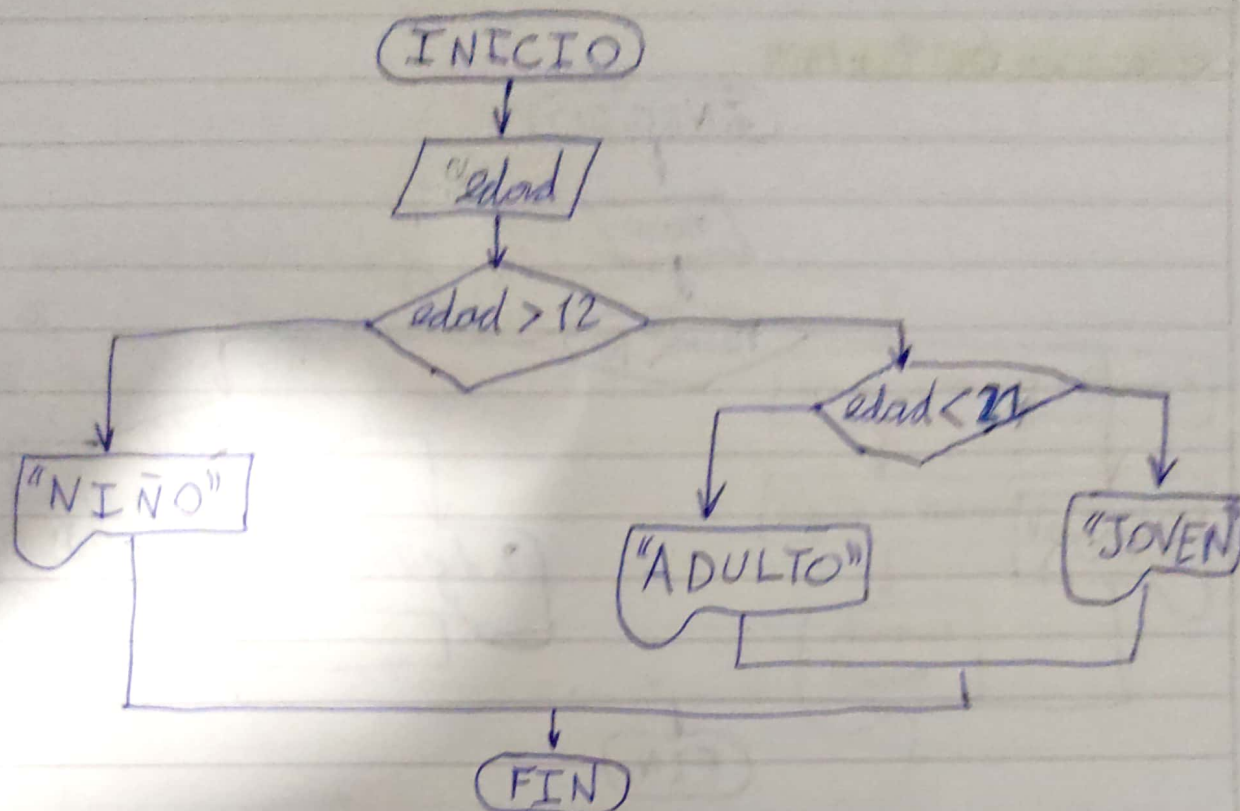 INICIO
"edad
edad > 12
edad < 21
"NIÑO"
"ADULTO"
"JOVEN
FIN